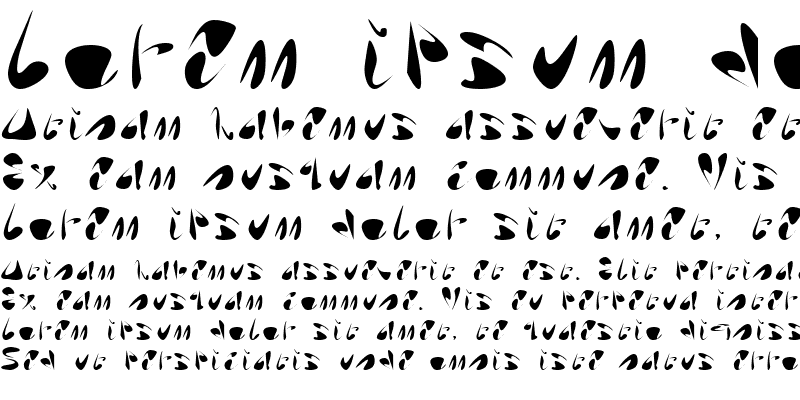 Lorem ipsum do
Utinam habemus assueverit et
Ex eam nusquam commune. Vis
Lorem ipsum dolor sit amet, te
Utinam habemus assueverit et est. Elit
Ex eam nusquam commune. Vis eu perpetua
Lorem ipsum dolor sit amet, te quaestio
Sed ut perspiciatis unde omnis iste natus erro